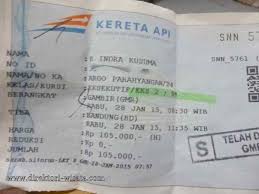 KERETA API
SNN 5761
NAMA : E INDRA KUSUMA
NO ID :
NAMA/NO KA : ARGO PARAHYANGAN/24
KELAS/KURSI : EKSEKUTIF/EKS 2 /
BERANGKAT : GAMBIR(GMR)
RABU, 28 JAN 15, 08:30 WIB
TIBA : BANDUNG(BD)
RABU, 28 JAN 15, 11:35 WIB
HARGA : Rp 105.000,-
REDUKSI : Rp 0,-
JUMLAH : Rp 105.000,-
28-JAN-2015 07:57
S
TELAH D
GMR
www.direktori-wisata.com